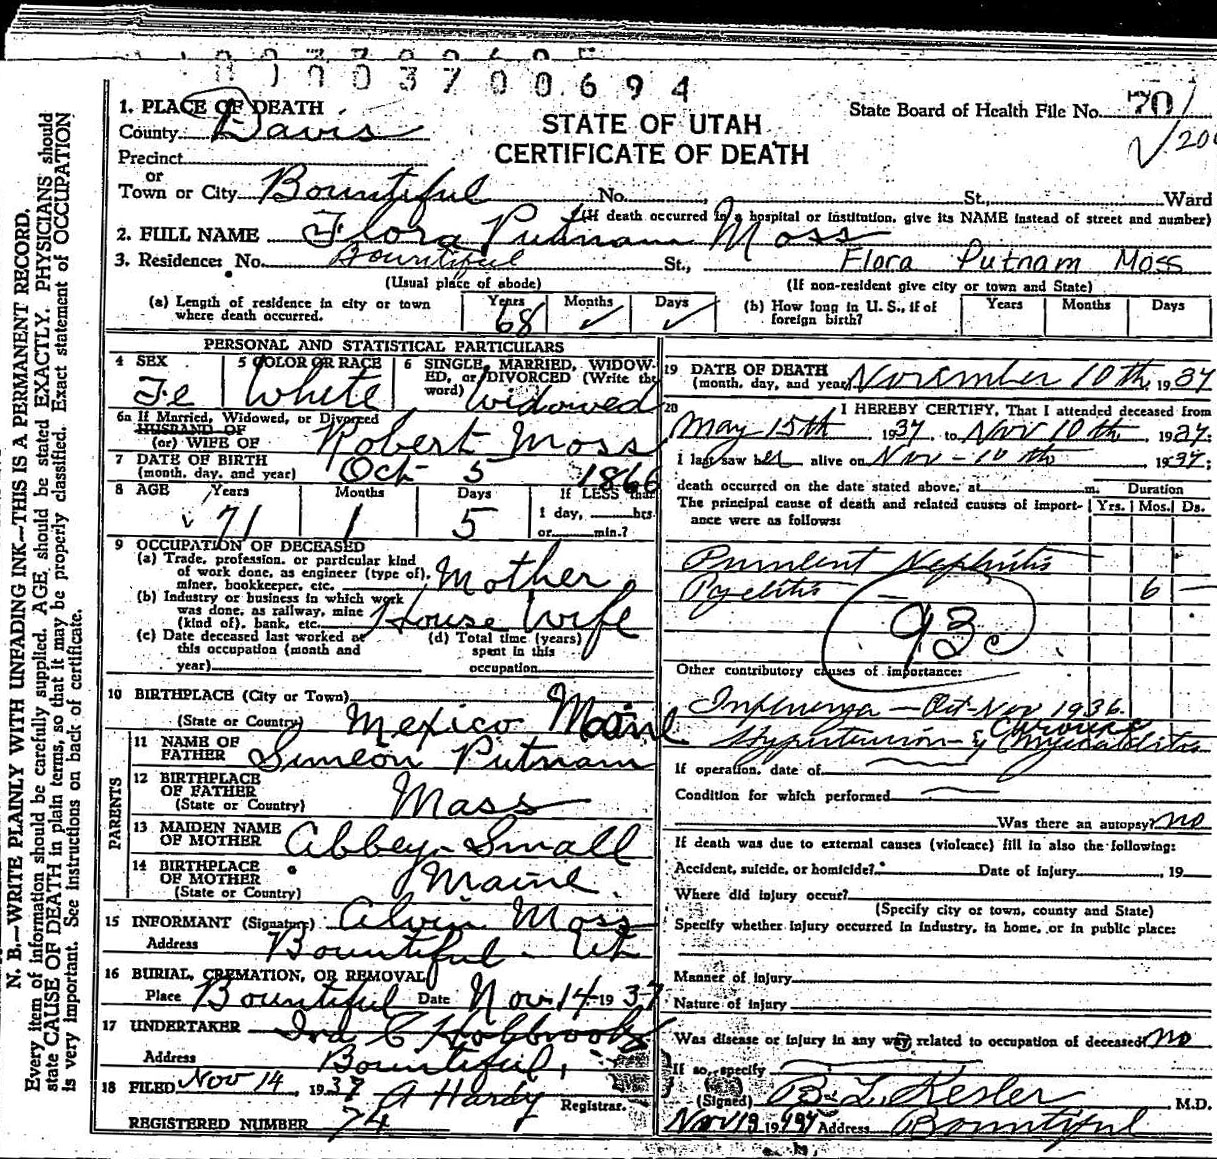 0003700694
1. PLACE OF DEATH
County Davis
State Board of Health File No. 70
STATE OF UTAH
CERTIFICATE OF DEATH
Precinct
or
Town or City Bountiful No. St., Ward
(If death occurred in a hospital or institution, give its NAME instead of street and number)
2. FULL NAME Flora Putnam Moss
3. Residence: No. Bountiful St., Flora Putnam Moss
(Usual place of abode) (If non-resident give city or town and State)
(a) Length of residence in city or town where death occurred. Years 68 Months ✓ Days ✓
(b) How long in U. S., if of foreign birth? Years Months Days
PERSONAL AND STATISTICAL PARTICULARS
4 SEX Fe
5 COLOR OR RACE White
6 SINGLE, MARRIED, WIDOWED, or DIVORCED (Write the word) Widowed
6a If Married, Widowed, or Divorced
HUSBAND OF
(or) WIFE OF Robert Moss
7 DATE OF BIRTH
(month, day, and year) Oct 5 1866
8 AGE Years 71 Months 1 Days 5 If LESS than
1 day, hrs.
or min.?
9 OCCUPATION OF DECEASED
(a) Trade, profession, or particular kind
of work done, as engineer (type of),
miner, bookkeeper, etc. Mother
(b) Industry or business in which work
was done, as railway, mine
(kind of), bank, etc. House Wife
(c) Date deceased last worked at
this occupation (month and
year)
(d) Total time (years)
spent in this
occupation
10 BIRTHPLACE (City or Town)
(State or Country) Mexico Maine
PARENTS
11 NAME OF
FATHER Simeon Putnam
12 BIRTHPLACE
OF FATHER
(State or Country) Mass
13 MAIDEN NAME
OF MOTHER Abbey Small
14 BIRTHPLACE
OF MOTHER
(State or Country) Maine
15 INFORMANT (Signature) Alvin Moss
Address Bountiful - Ut
16 BURIAL, CREMATION, OR REMOVAL
Place Bountiful Date Nov. 14 1937
17 UNDERTAKER Ira C Holbrook
Address Bountiful,
18 FILED Nov 14, 1937 A Hardy Registrar.
REGISTERED NUMBER 74
19 DATE OF DEATH
(month, day, and year) November 10th 1937
20 I HEREBY CERTIFY, That I attended deceased from
May 15th 1937, to Nov 10th 1937;
I last saw her alive on Nov - 10th 1937;
death occurred on the date stated above, at m. Duration
The principal cause of death and related causes of importance were as follows: Yrs. Mos. Ds.
Purulent Nephritis
Pyelitis — 6 —
93c
Other contributory causes of importance:
Influenza — Oct-Nov 1936.
Hypertension & Chronic Myocarditis
If operation, date of
Condition for which performed
Was there an autopsy? no
If death was due to external causes (violence) fill in also the following:
Accident, suicide, or homicide? Date of injury , 19
Where did injury occur?
(Specify city or town, county and State)
Specify whether injury occurred in industry, in home, or in public place:
Manner of injury
Nature of injury
Was disease or injury in any way related to occupation of deceased? no
If so, specify
(Signed) B. L. Kesler , M.D.
Nov 19 Address Bountiful
N. B.—WRITE PLAINLY WITH UNFADING INK—THIS IS A PERMANENT RECORD.
Every item of information should be carefully supplied. AGE should be stated EXACTLY. PHYSICIANS should
state CAUSE OF DEATH in plain terms, so that it may be properly classified. Exact statement of OCCUPATION
is very important. See instructions on back of certificate.